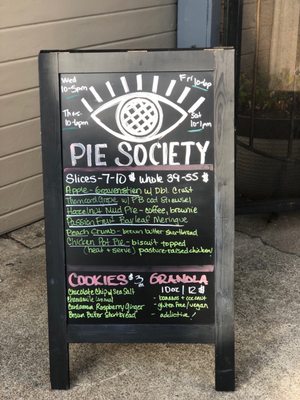 Wed
10-5pm
Thurs
10-4pm
Fri 10-4p
Sat
10-1pm
PIE SOCIETY
Slices-7-10$ Whole 39-55
Apple-Gravenstein w/ Dbl Crust
Hazelnut Mud Pie - coffee, brownie
Passion Fruit Bay leaf Meringue
Peach Crumb - brown butter shortbread
Chicken Pot Pie - biscuit topped
(heat + serve) pasture-raised chicken
COOKIES $3
Chocolate Chip & Sea Salt
Cardamom Raspberry Ginger
Brown Butter Shortbread
GRANOLA
10oz / 12$
- bananas + coconut
- gluten free/vegan
- addictive!